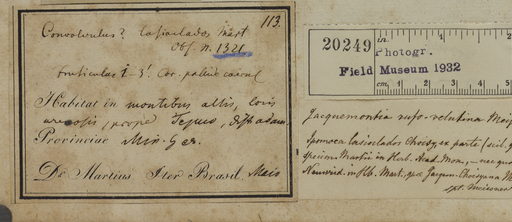 113.
Convolvulus? lasioclados Mart
Obs. n. 1321
fruticulus 1-3'. Cor. pallide caerul
Habitat in montibus altis, locis
arenosis, prope Tejuco, Distr. adam.
Provinciae Min. Ger.
Dr Martius Iter Brasil. Maio
20249
in.
Photogr.
Field Museum 1932
cm. 1 2 3 4 5
Jacquemontia rufo-velutina Meis
Ipomoea lasioclados Choisy ex parte
specim. Martii in Herb. Acad. Mon.
Neuwied. in Hb. Mart.
Meissner